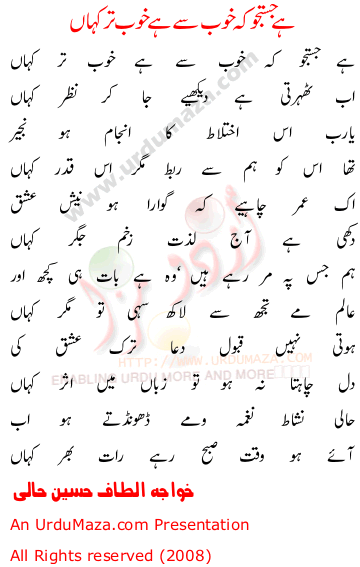 ہے جستجو کہ خوب سے ہے خوب تر کہاں
ہے جستجو کہ خوب سے ہے خوب تر کہاں
اب ٹھہرتی ہے دیکھیے جا کر نظر کہاں
یارب اس اختلاط کا انجام ہو بخیر
تھا اس کو ہم سے ربط مگر اس قدر کہاں
اک عمر چاہیے کہ گوارا ہو نیش عشق
رکھی ہے آج لذت زخم جگر کہاں
ہم جس پہ مر رہے ہیں ‘وہ ہے بات ہی کچھ اور
عالم مے تجھ سے لاکھ سہی تو مگر کہاں
ہوتی نہیں قبول دعا ترک عشق کی
دل چاہتا نہ ہو تو زباں میں اثر کہاں
حالی نشاط نغمہ ومے ڈھونڈتے ہو اب
آئے ہو وقت صبح رہے رات بھر کہاں
خواجہ الطاف حسین حالی
An UrduMaza.com Presentation
All Rights reserved (2008)
www.urdumaza.com
اردو مزا
HTTP://WWW.URDUMAZA.COM
ENABLING URDU MORE AND MORE